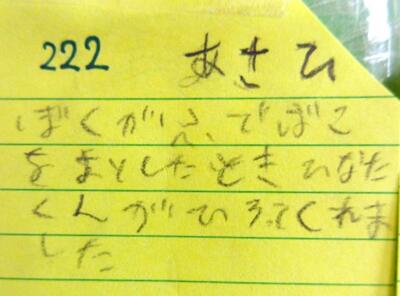 222 あさひ
ぼくがふでばこ
をおとしたときひなた
くんがひろってくれま
した